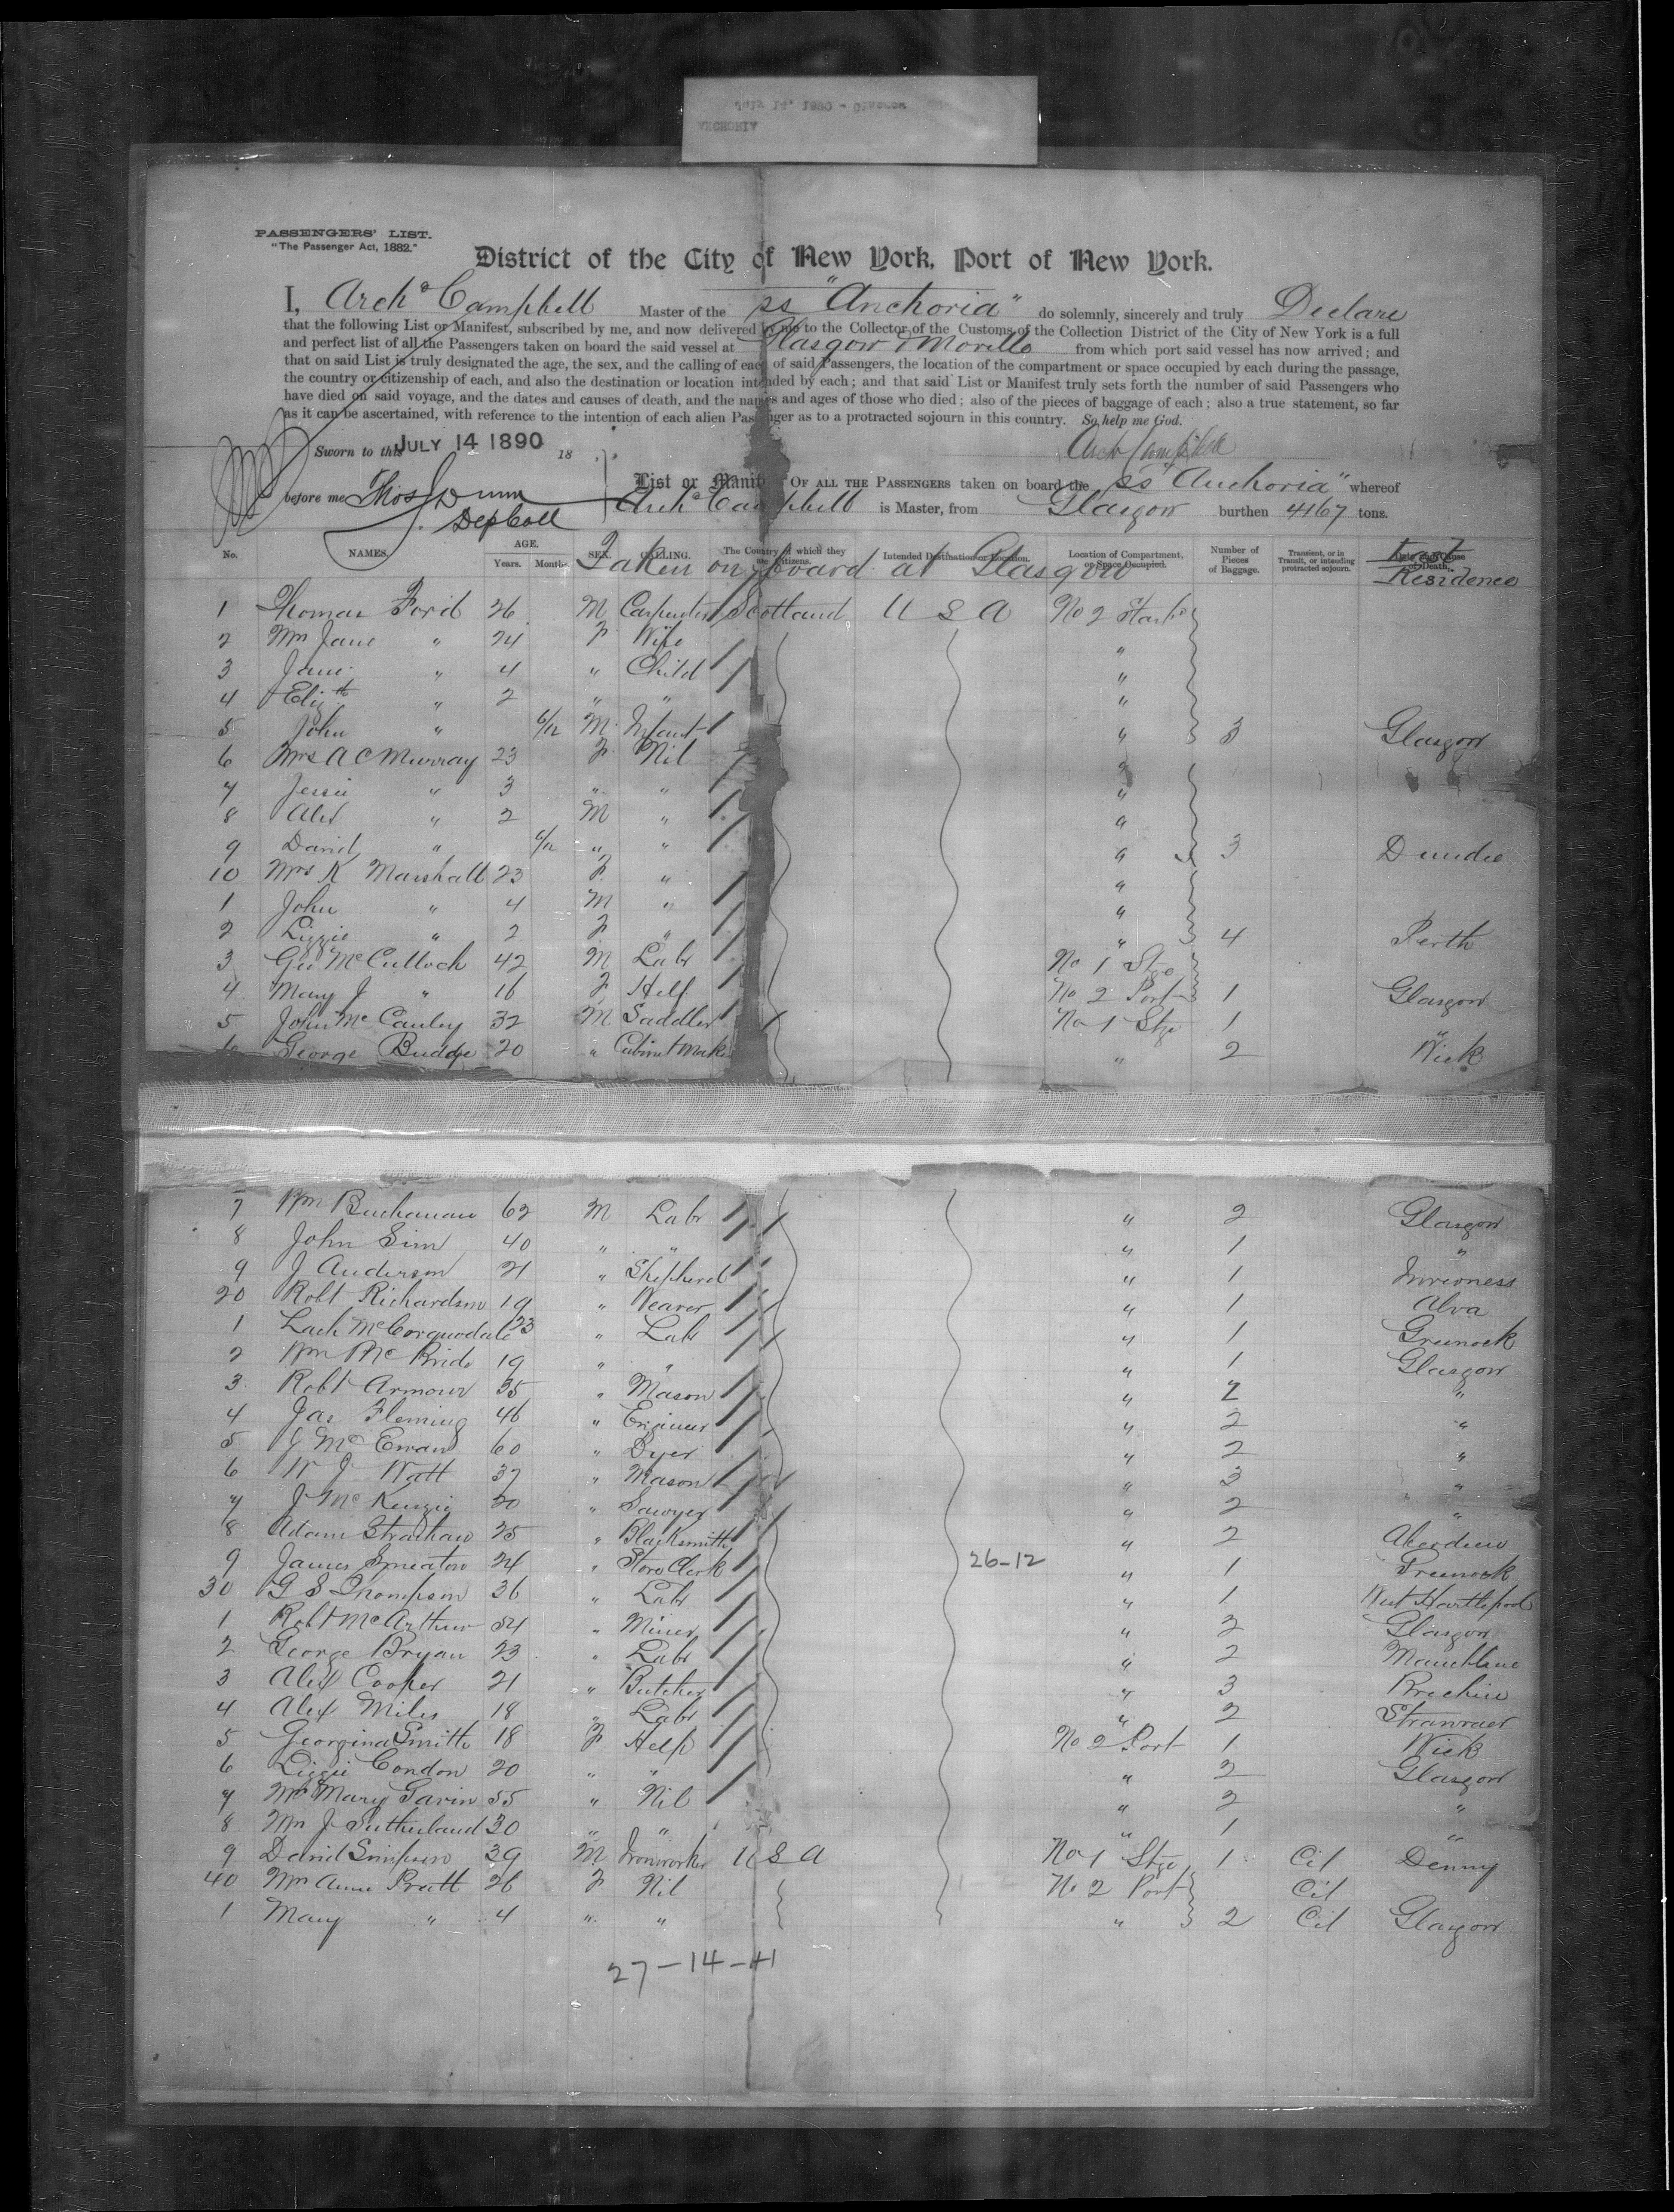 PASSENGERS' LIST.
"The Passenger Act, 1882."
District of the City of New York, Port of New York.
I, Archd Campbell Master of the ss "Anchoria" do solemnly, sincerely and truly Declare
that the following List or Manifest, subscribed by me, and now delivered by me to the Collector of the Customs of the Collection District of the City of New York is a full
and perfect list of all the Passengers taken on board the said vessel at Glasgow & Moville from which port said vessel has now arrived; and
that on said List is truly designated the age, the sex, and the calling of each of said Passengers, the location of the compartment or space occupied by each during the passage,
the country or citizenship of each, and also the destination or location intended by each; and that said List or Manifest truly sets forth the number of said Passengers who
have died on said voyage, and the dates and causes of death, and the names and ages of those who died; also of the pieces of baggage of each; also a true statement, so far
as it can be ascertained, with reference to the intention of each alien Passenger as to a protracted sojourn in this country. So help me God.
Sworn to this JULY 14 1890 18 Arch Campbell
before me Thos J Dunn
Dep Coll
List or Manifest OF ALL THE PASSENGERS taken on board the ss "Anchoria" whereof
Archd Campbell is Master, from Glasgow burthen 4167 tons.
No. NAMES. AGE. Years. Months. SEX. CALLING. The Country of which they are Citizens. Intended Destination or Location. Location of Compartment, or Space Occupied. Number of Pieces of Baggage. Transient, or in Transit, or intending protracted sojourn. Date and Cause of Death.
Taken on board at Glasgow Last Residence
1 Thomas Ford 26 M Carpenter Scotland U S A No 2 Starbd
2 Mrs Jane " 24 F Wife "
3 Jane " 4 " Child "
4 Elizth " 2 " " "
5 John " 6/12 M Infant " 3 Glasgow
6 Mrs A C Murray 23 F Nil "
7 Jessie " 3 " " "
8 Alex " 2 M " "
9 David " 6/12 " " " 3 Dundee
10 Mrs K Marshall 23 F " "
1 John " 4 M " "
2 Lizzie " 2 F " " 4 Perth
3 Geo McCulloch 42 M Labr No 1 Stge
4 Mary J " 16 F Help No 2 Port 1 Glasgow
5 John McCauley 32 M Saddler No 1 Stge 1 "
6 George Budge 20 " Cabinet Maker " 2 Wick
7 Wm Buchanan 62 M Labr " 2 Glasgow
8 John Sim 40 " " " 1 "
9 J Anderson 21 " Shepherd " 1 Inverness
20 Robt Richardson 19 " Weaver " 1 Alva
1 Lach McCorquodale 23 " Labr " 1 Greenock
2 Wm McBride 19 " " " 1 Glasgow
3 Robt Armour 35 " Mason " 2 "
4 Jas Fleming 46 " Engineer " 2 "
5 J McEwan 60 " Dyer " 2 "
6 W J Watt 37 " Mason " 3 "
7 J McKenzie 20 " Sawyer " 2 "
8 Adam Strachan 25 " Blacksmith " 2 Aberdeen
9 James Smeaton 24 " Store Clerk 26-12 " 1 Greenock
30 G S Thompson 36 " Labr " 1 West Hartlepool
1 Robt McArthur 54 " Miner " 2 Glasgow
2 George Bryan 23 " Labr " 2 Mauchline
3 Alex Cooper 21 " Butcher " 3 Brechin
4 Alex Miles 18 " Labr " 2 Stranraer
5 Georgina Smith 18 F Help No 2 Port 1 Wick
6 Lizzie Condon 20 " " " 2 Glasgow
7 Mrs Mary Gavin 55 " Nil " 2 "
8 Mrs J Sutherland 30 " " " 1 "
9 David Simpson 39 M Ironworker U S A No 1 Stge 1 Cit Denny
40 Mrs Annie Pratt 26 F Nil No 2 Port Cit
1 Mary " 4 " " " 2 Cit Glasgow
27-14-41